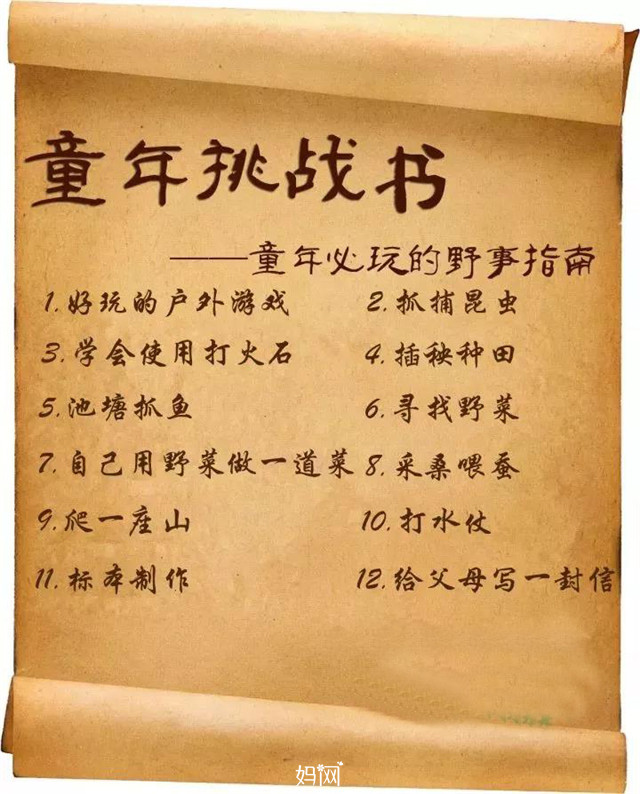 童年挑战书
——童年必玩的野事指南
1.好玩的户外游戏 2.抓捕昆虫
3.学会使用打火石 4.插秧种田
5.池塘抓鱼 6.寻找野菜
7.自己用野菜做一道菜 8.采桑喂蚕
9.爬一座山 10.打水仗
11.标本制作 12.给父母写一封信
妈网